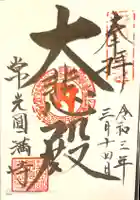 奉拝
令和三年
三月十四日
大悲殿
常光圓満寺